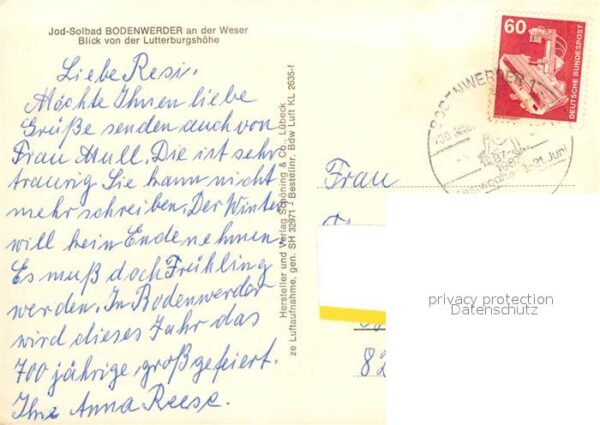 Jod-Solbad BODENWERDER an der Weser
Blick von der Lutterburgshöhe
Liebe Resi.
Möchte Ihnen liebe
Grüße senden auch von
Frau Mull. Die ist sehr
traurig Sie kann nicht
mehr schreiben. Der Winter
will kein Ende nehmen.
Es muß doch Frühling
werden. In Bodenwerder
wird dieses Jahr das
700 jährige groß gefeiert.
Ihre Anna Reese.
Hersteller und Verlag Schöning & Co., Lübeck
ze Luftaufnahme, gen. SH 32971 Bestellnr. Bdw Luft KL 2635-f
60
DEUTSCHE BUNDESPOST
BODENWERDER 1
1287
1987
21. Juni
Frau
82
privacy protection
Datenschutz